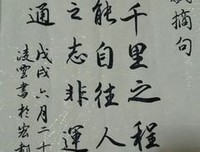 摘句
千里之程
能自往人
之志非運
通
戊戌六月二十
凌雲書於